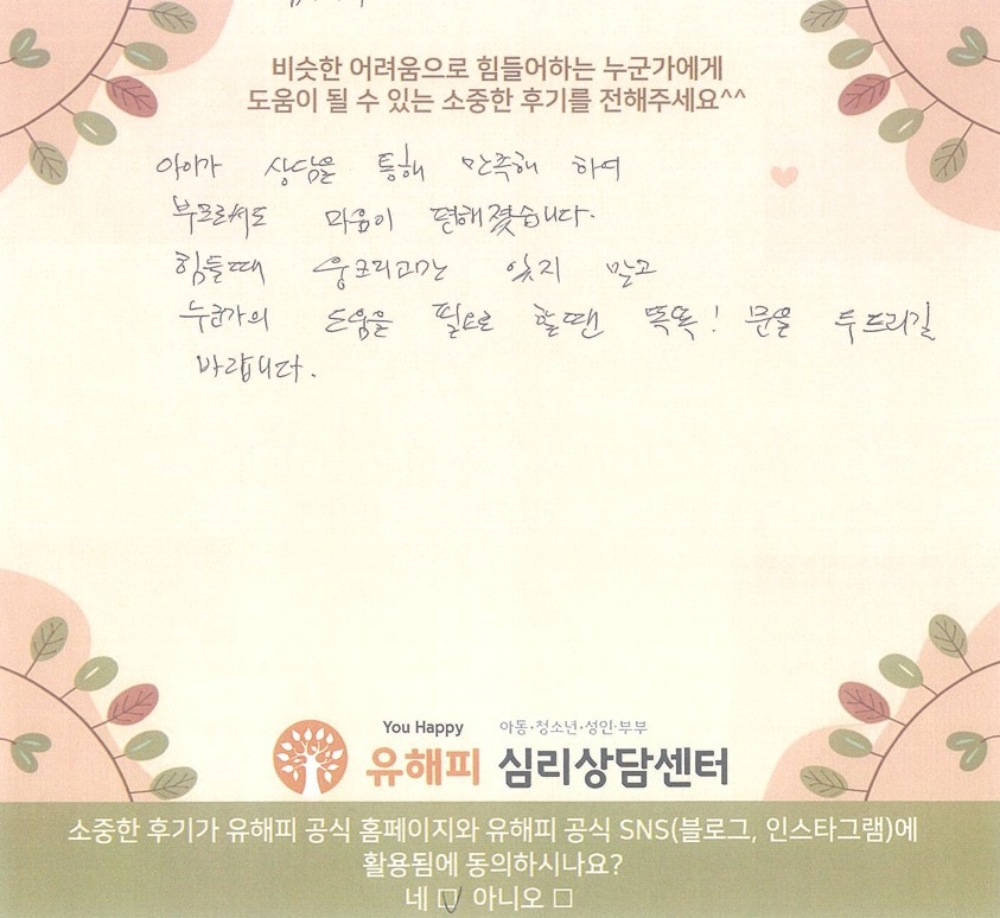 비슷한 어려움으로 힘들어하는 누군가에게
도움이 될 수 있는 소중한 후기를 전해주세요^^
아이가 상담을 통해 만족해 하여
부모로써도 마음이 편해졌습니다.
힘들때 웅크리고만 있지 말고
누군가의 도움을 필요로 할땐 똑똑! 문을 두드리길
바랍니다.
You Happy 아동·청소년·성인·부부
유해피 심리상담센터
소중한 후기가 유해피 공식 홈페이지와 유해피 공식 SNS(블로그, 인스타그램)에
활용됨에 동의하시나요?
네 ☑ 아니오 □